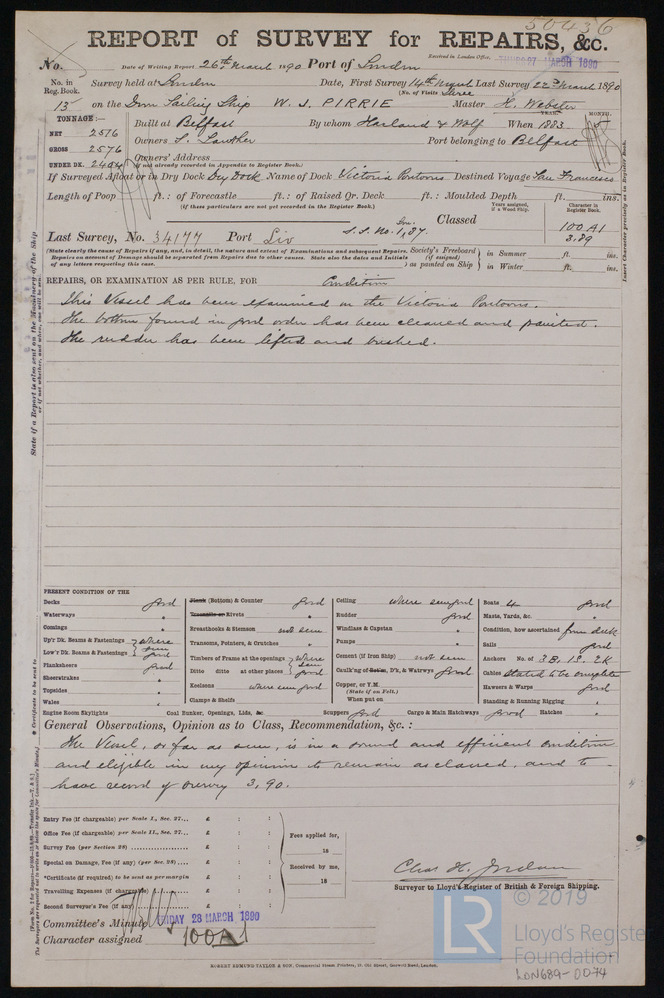 50436
REPORT of SURVEY for REPAIRS, &c.
No. Date of Writing Report 26th March 1890 Port of London Received in London Office, THURS 27 MARCH 1890
No. in Reg. Book. Survey held at London Date, First Survey 14th March Last Survey 22nd March 1890
(No. of Visits Three
15 on the Iron Sailing Ship W. J. PIRRIE Master H. Webster
TONNAGE:— Built at Belfast By whom Harland & Wolf When 1883 YEAR. MONTH.
NET 2516
GROSS 2576 Owners S. Lawther Port belonging to Belfast
UNDER DK. 2404 Owners' Address
(if not already recorded in Appendix to Register Book.)
If Surveyed Afloat or in Dry Dock Dry Dock Name of Dock Victoria Pontoons Destined Voyage San Francisco
Length of Poop ft.: of Forecastle ft.: of Raised Qr. Deck ft.: Moulded Depth ft. ins.
(if these particulars are not yet recorded in the Register Book.)
Years assigned, if a Wood Ship. Character in Register Book.
Classed 100 A1
3.89
Last Survey, No. 34177 Port Liv S.S. No. 1, 87.
(State clearly the cause of Repairs if any, and, in detail, the nature and extent of Examinations and subsequent Repairs.
Repairs on account of Damage should be separated from Repairs due to other causes. State also the dates and Initials
of any letters respecting this case.
Society's Freeboard (if assigned) as painted on Ship in Summer ft. ins.
in Winter ft. ins.
REPAIRS, OR EXAMINATION AS PER RULE, FOR Condition
This Vessel has been examined on the Victoria Pontoons.
The bottom found in good order has been cleaned and painted.
The rudder has been lifted and bushed.
PRESENT CONDITION OF THE
Decks good
Waterways "
Comings "
Up'r Dk. Beams & Fastenings where seen good
Low'r Dk. Beams & Fastenings
Planksheers good
Sheerstrakes "
Topsides "
Wales "
Engine Room Skylights
Plank (Bottom) & Counter good
Treenails or Rivets "
Breasthooks & Stemson not seen
Transoms, Pointers, & Crutches "
Timbers of Frame at the openings where seen good
Ditto ditto at other places
Keelsons where seen good
Clamps & Shelfs
Coal Bunker, Openings, Lids, &c
Ceiling where seen good
Rudder good
Windlass & Capstan "
Pumps "
Cement (if Iron Ship) not seen
Caulk'ng of Botm, D'k, & Watrwys good
Copper, or Y.M.
(State if on Felt.)
When put on
Scuppers good Cargo & Main Hatchways good Hatches "
Boats 4 good
Masts, Yards, &c. "
Condition, how ascertained from deck
Sails good
Anchors No. of 3B. 1S. 2K
Cables stated to be complete
Hawsers & Warps good
Standing & Running Rigging "
General Observations, Opinion as to Class, Recommendation, &c.:
The Vessel, so far as seen, is in a sound and efficient condition
and eligible in my opinion to remain as classed, and to
have record of survey 3, 90.
Entry Fee (if chargeable) per Scale I., Sec. 27... £ : :
Office Fee (if chargeable) per Scale II., Sec. 27... £ : :
Survey Fee (per Section 28) £ : :
Special on Damage, Fee (if any) (per Sec. 28).... £ : :
*Certificate (if required) to be sent as per margin £ : :
Travelling Expenses (if chargeable) £ : :
Second Surveyor's Fee (if any) £ : :
Fees applied for, 18
Received by me, 18
Chas H. Jordan
Surveyor to Lloyd's Register of British & Foreign Shipping.
Committee's Minute FRIDAY 28 MARCH 1890
Character assigned 100A1
ROBERT EDMUND TAYLOR & SON, Commercial Steam Printers, 19, Old Street, Goswell Road, London.
© 2019
LR
Lloyd's Register
Foundation
LON689-0074